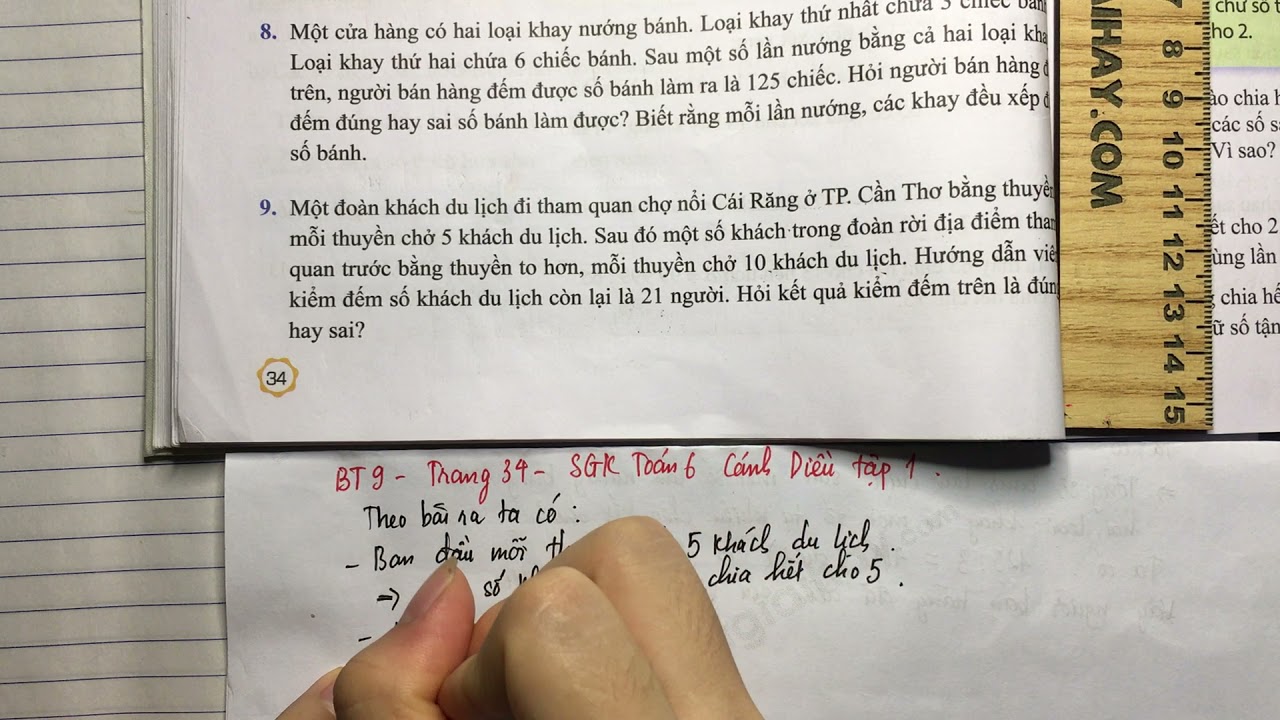 8. Một cửa hàng có hai loại khay nướng bánh. Loại khay thứ nhất chứa 3 chiếc bánh
Loại khay thứ hai chứa 6 chiếc bánh. Sau một số lần nướng bằng cả hai loại kha
trên, người bán hàng đếm được số bánh làm ra là 125 chiếc. Hỏi người bán hàng
đếm đúng hay sai số bánh làm được? Biết rằng mỗi lần nướng, các khay đều xếp
số bánh.
9. Một đoàn khách du lịch đi tham quan chợ nổi Cái Răng ở TP. Cần Thơ bằng thuyền
mỗi thuyền chở 5 khách du lịch. Sau đó một số khách trong đoàn rời địa điểm tham
quan trước bằng thuyền to hơn, mỗi thuyền chở 10 khách du lịch. Hướng dẫn viê
kiểm đếm số khách du lịch còn lại là 21 người. Hỏi kết quả kiểm đếm trên là đún
hay sai?
34
AIHAY.COM
7 8 9 10 11 12 13 14 15
chữ số t
ho 2.
ào chia h
các số s
Vì sao?
ết cho 2
ùng lần
chia hế
ữ số tận
BT 9 - Trang 34 - SGK Toán 6 Cánh Diều tập 1.
Theo bài ra ta có:
- Ban đầu mỗi th 5 khách du lịch.
=> số chia hết cho 5.
-